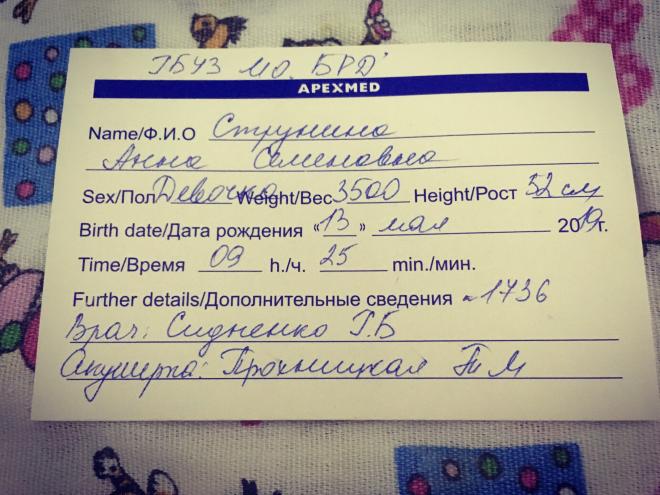 ГБУЗ МО. БРД
APEXMED
Name/Ф.И.О Струнина
Анна Семеновна
Sex/Пол Девочка Weight/Вес 3500 Height/Рост 52 см
Birth date/Дата рождения «13» мая 2019г.
Time/Время 09 h./ч. 25 min./мин.
Further details/Дополнительные сведения 1736
Врач: Сидненко Г.Б
Акушерка: Прохницкая Т М